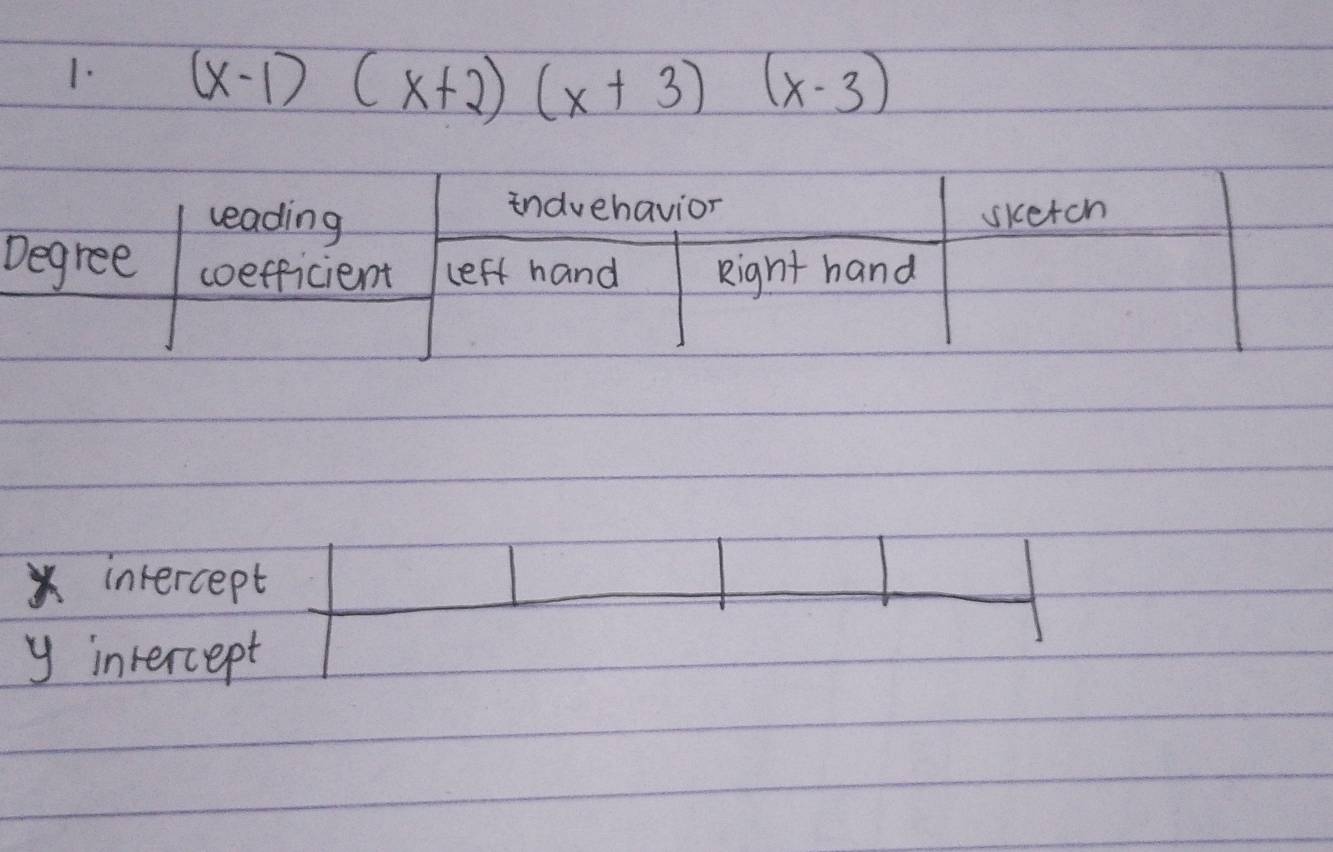 1. (x-1) (x+2) (x + 3) (x-3)
Degree
Leading
coefficient
Endvehavior
Left hand
Right hand
sketch
x intercept
y intercept